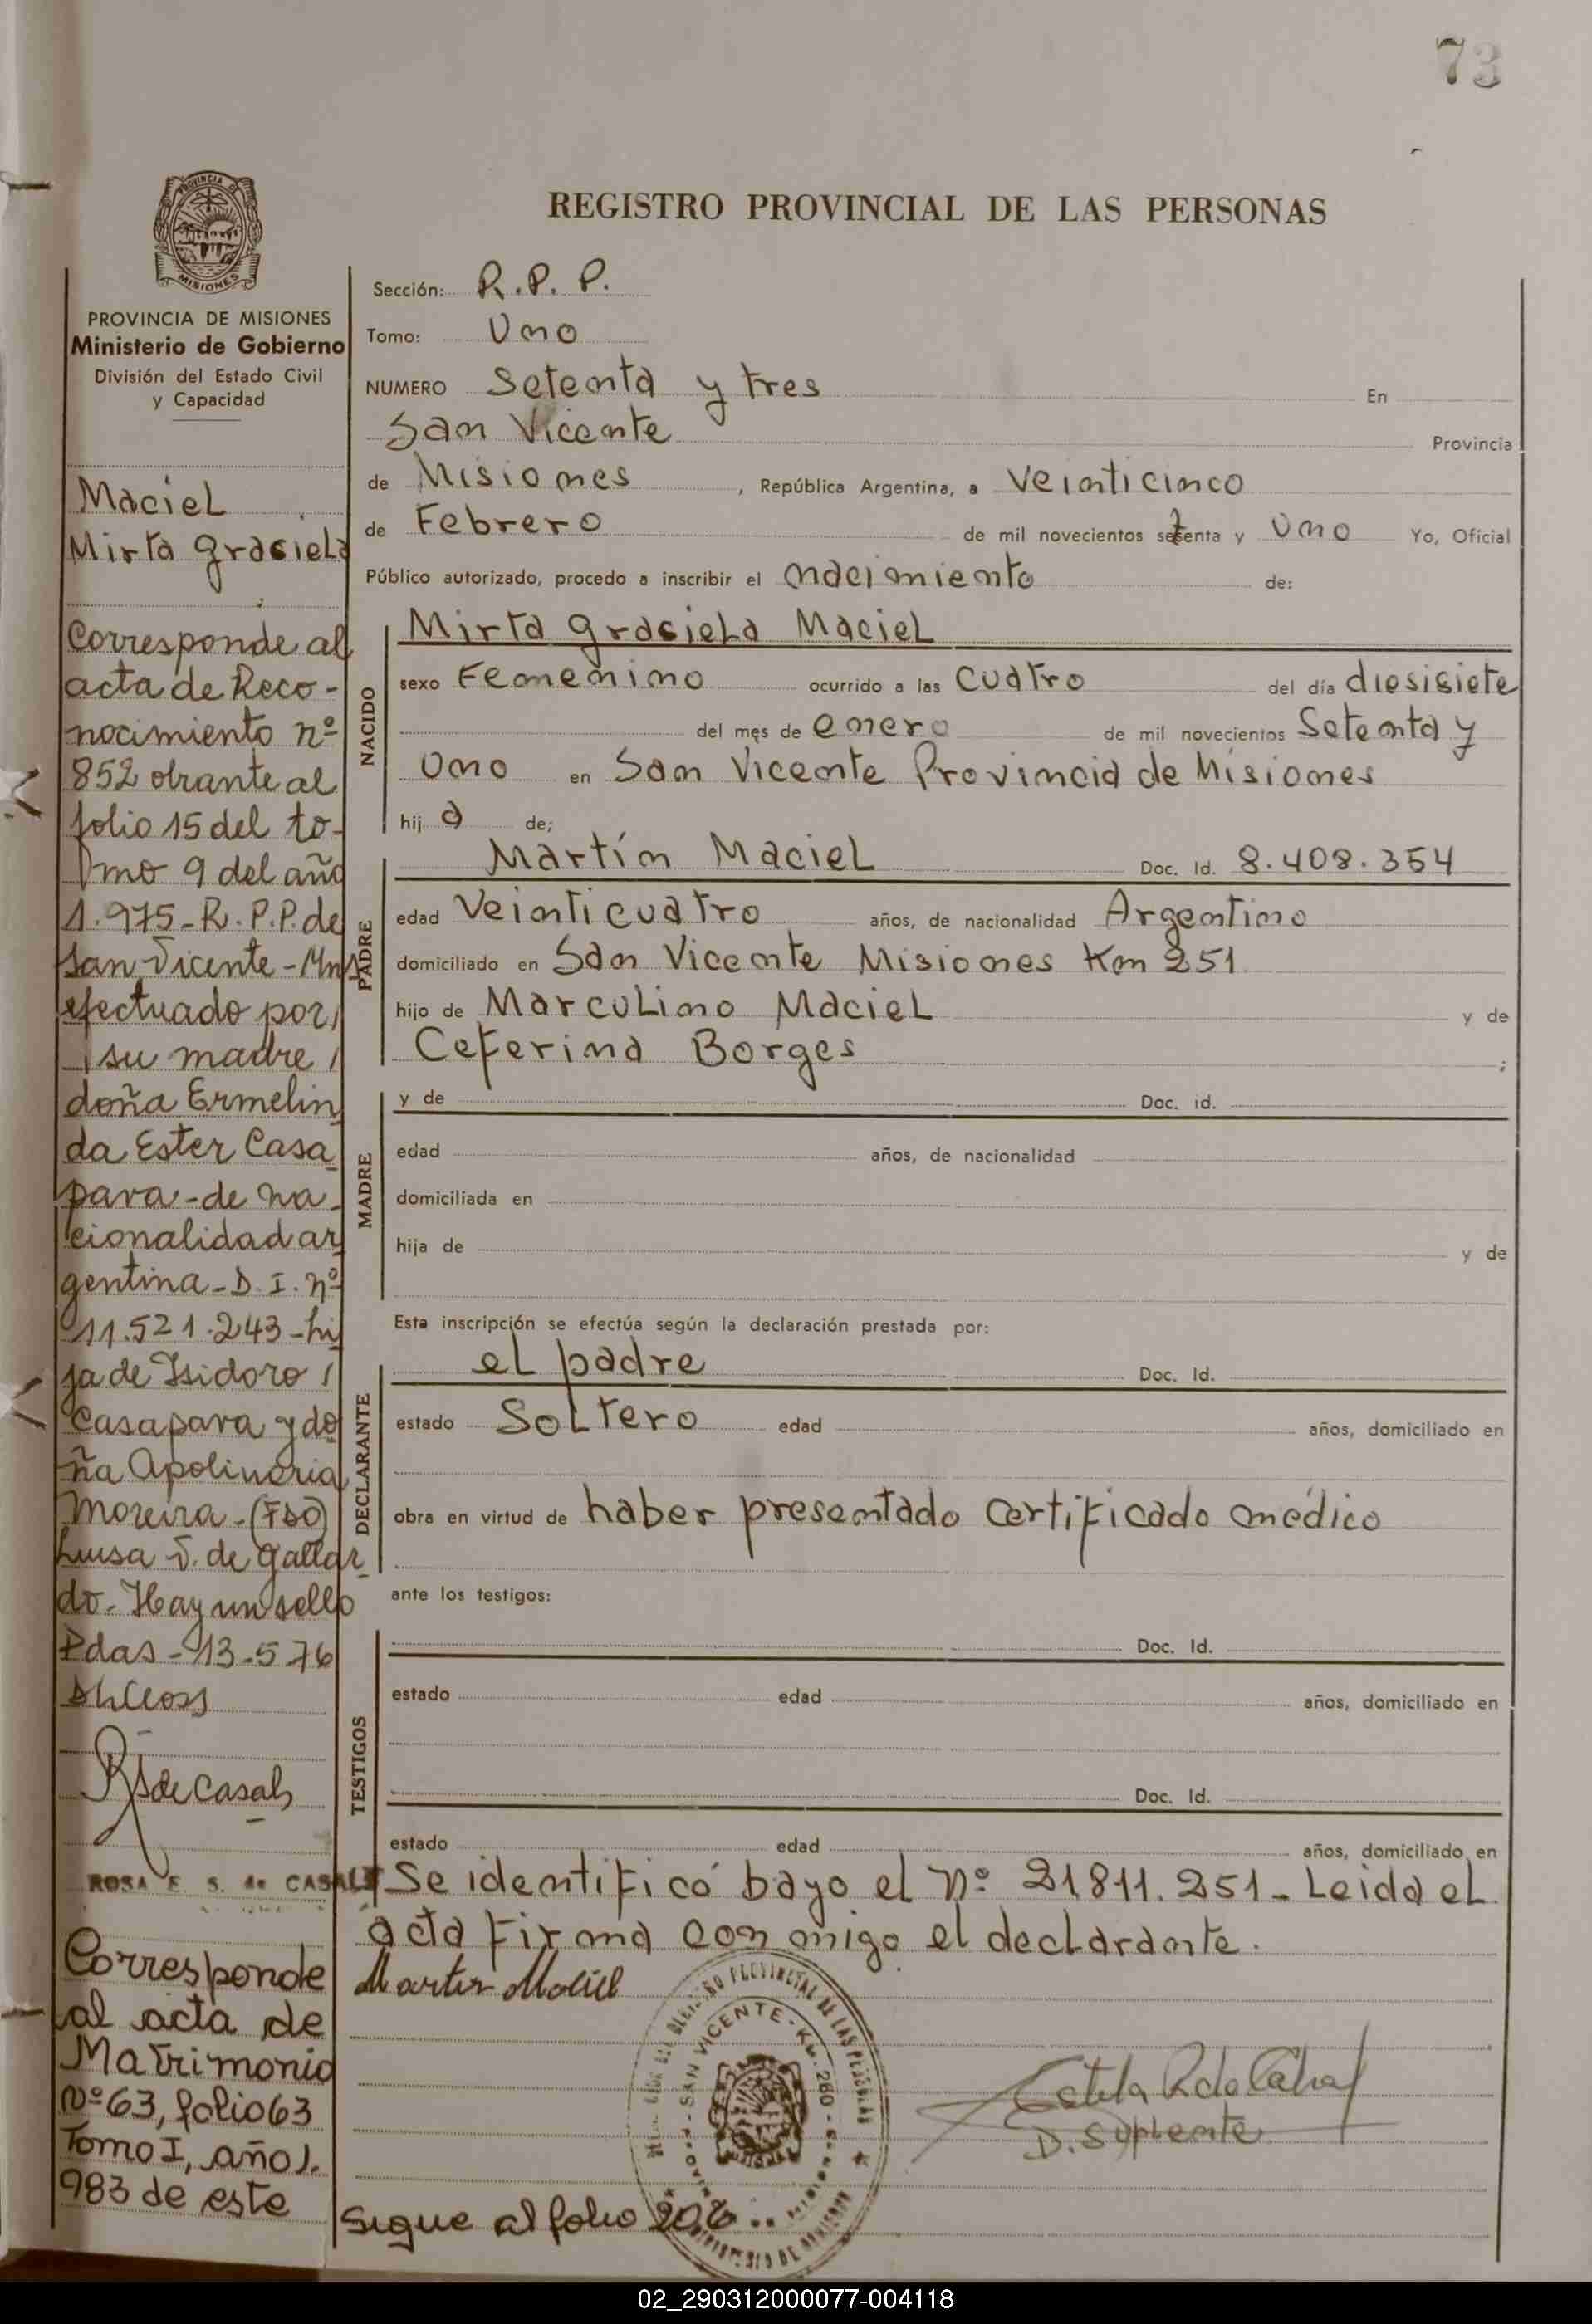 73
REGISTRO PROVINCIAL DE LAS PERSONAS
PROVINCIA DE
MISIONES
PROVINCIA DE MISIONES
Ministerio de Gobierno
División del Estado Civil
y Capacidad
Maciel
Mirta Graciela
Corresponde al
acta de Reco-
nocimiento nº
852 obrante al
folio 15 del to-
mo 9 del año
1.975-R.P.P. de
San Vicente-Mns
efectuado por
su madre
doña Ermelin
da Ester Casa
para-de na-
cionalidad ar
gentina-D.I. nº
11.521.243-hi
ja de Isidoro
Casapara y do
ña Apolinaria
Moreira-(FDO)
Luisa V. de Gallar
do. Hay un sello
Pdas-13-5-76
de Casals
ROSA E. S. de CASALS
Corresponde
al acta de
Matrimonio
Nº 63, folio 63
Tomo I, año 1.
983 de este
Sección: R.P.P.
Tomo: Uno
NUMERO Setenta y tres En
San Vicente Provincia
de Misiones , República Argentina, a Veinticinco
de Febrero de mil novecientos setenta y Uno Yo, Oficial
Público autorizado, procedo a inscribir el nacimiento de:
NACIDO
Mirta Graciela Maciel
sexo Femenino ocurrido a las Cuatro del día diesisiete
del mes de enero de mil novecientos Setenta y
Uno en San Vicente Provincia de Misiones
hij a de;
PADRE
Martín Maciel Doc. Id. 8.408.354
edad Veinticuatro años, de nacionalidad Argentino
domiciliado en San Vicente Misiones Km 251
hijo de Marculino Maciel y de
Ceferina Borges ;
MADRE
y de Doc. id.
edad años, de nacionalidad
domiciliada en
hija de y de
Esta inscripción se efectúa según la declaración prestada por:
DECLARANTE
el padre Doc. Id.
estado Soltero edad años, domiciliado en
obra en virtud de haber presentado certificado médico
ante los testigos:
TESTIGOS
Doc. Id.
estado edad años, domiciliado en
Doc. Id.
estado edad años, domiciliado en
Se identificó bayo el Nº 21811.251- Leida el
acta firma con migo el declarante.
Martin Maciel
SAN VICENTE - KM. 260
Estela R de Cabral
D. Suplente
Sigue al folio 206
02_290312000077-004118